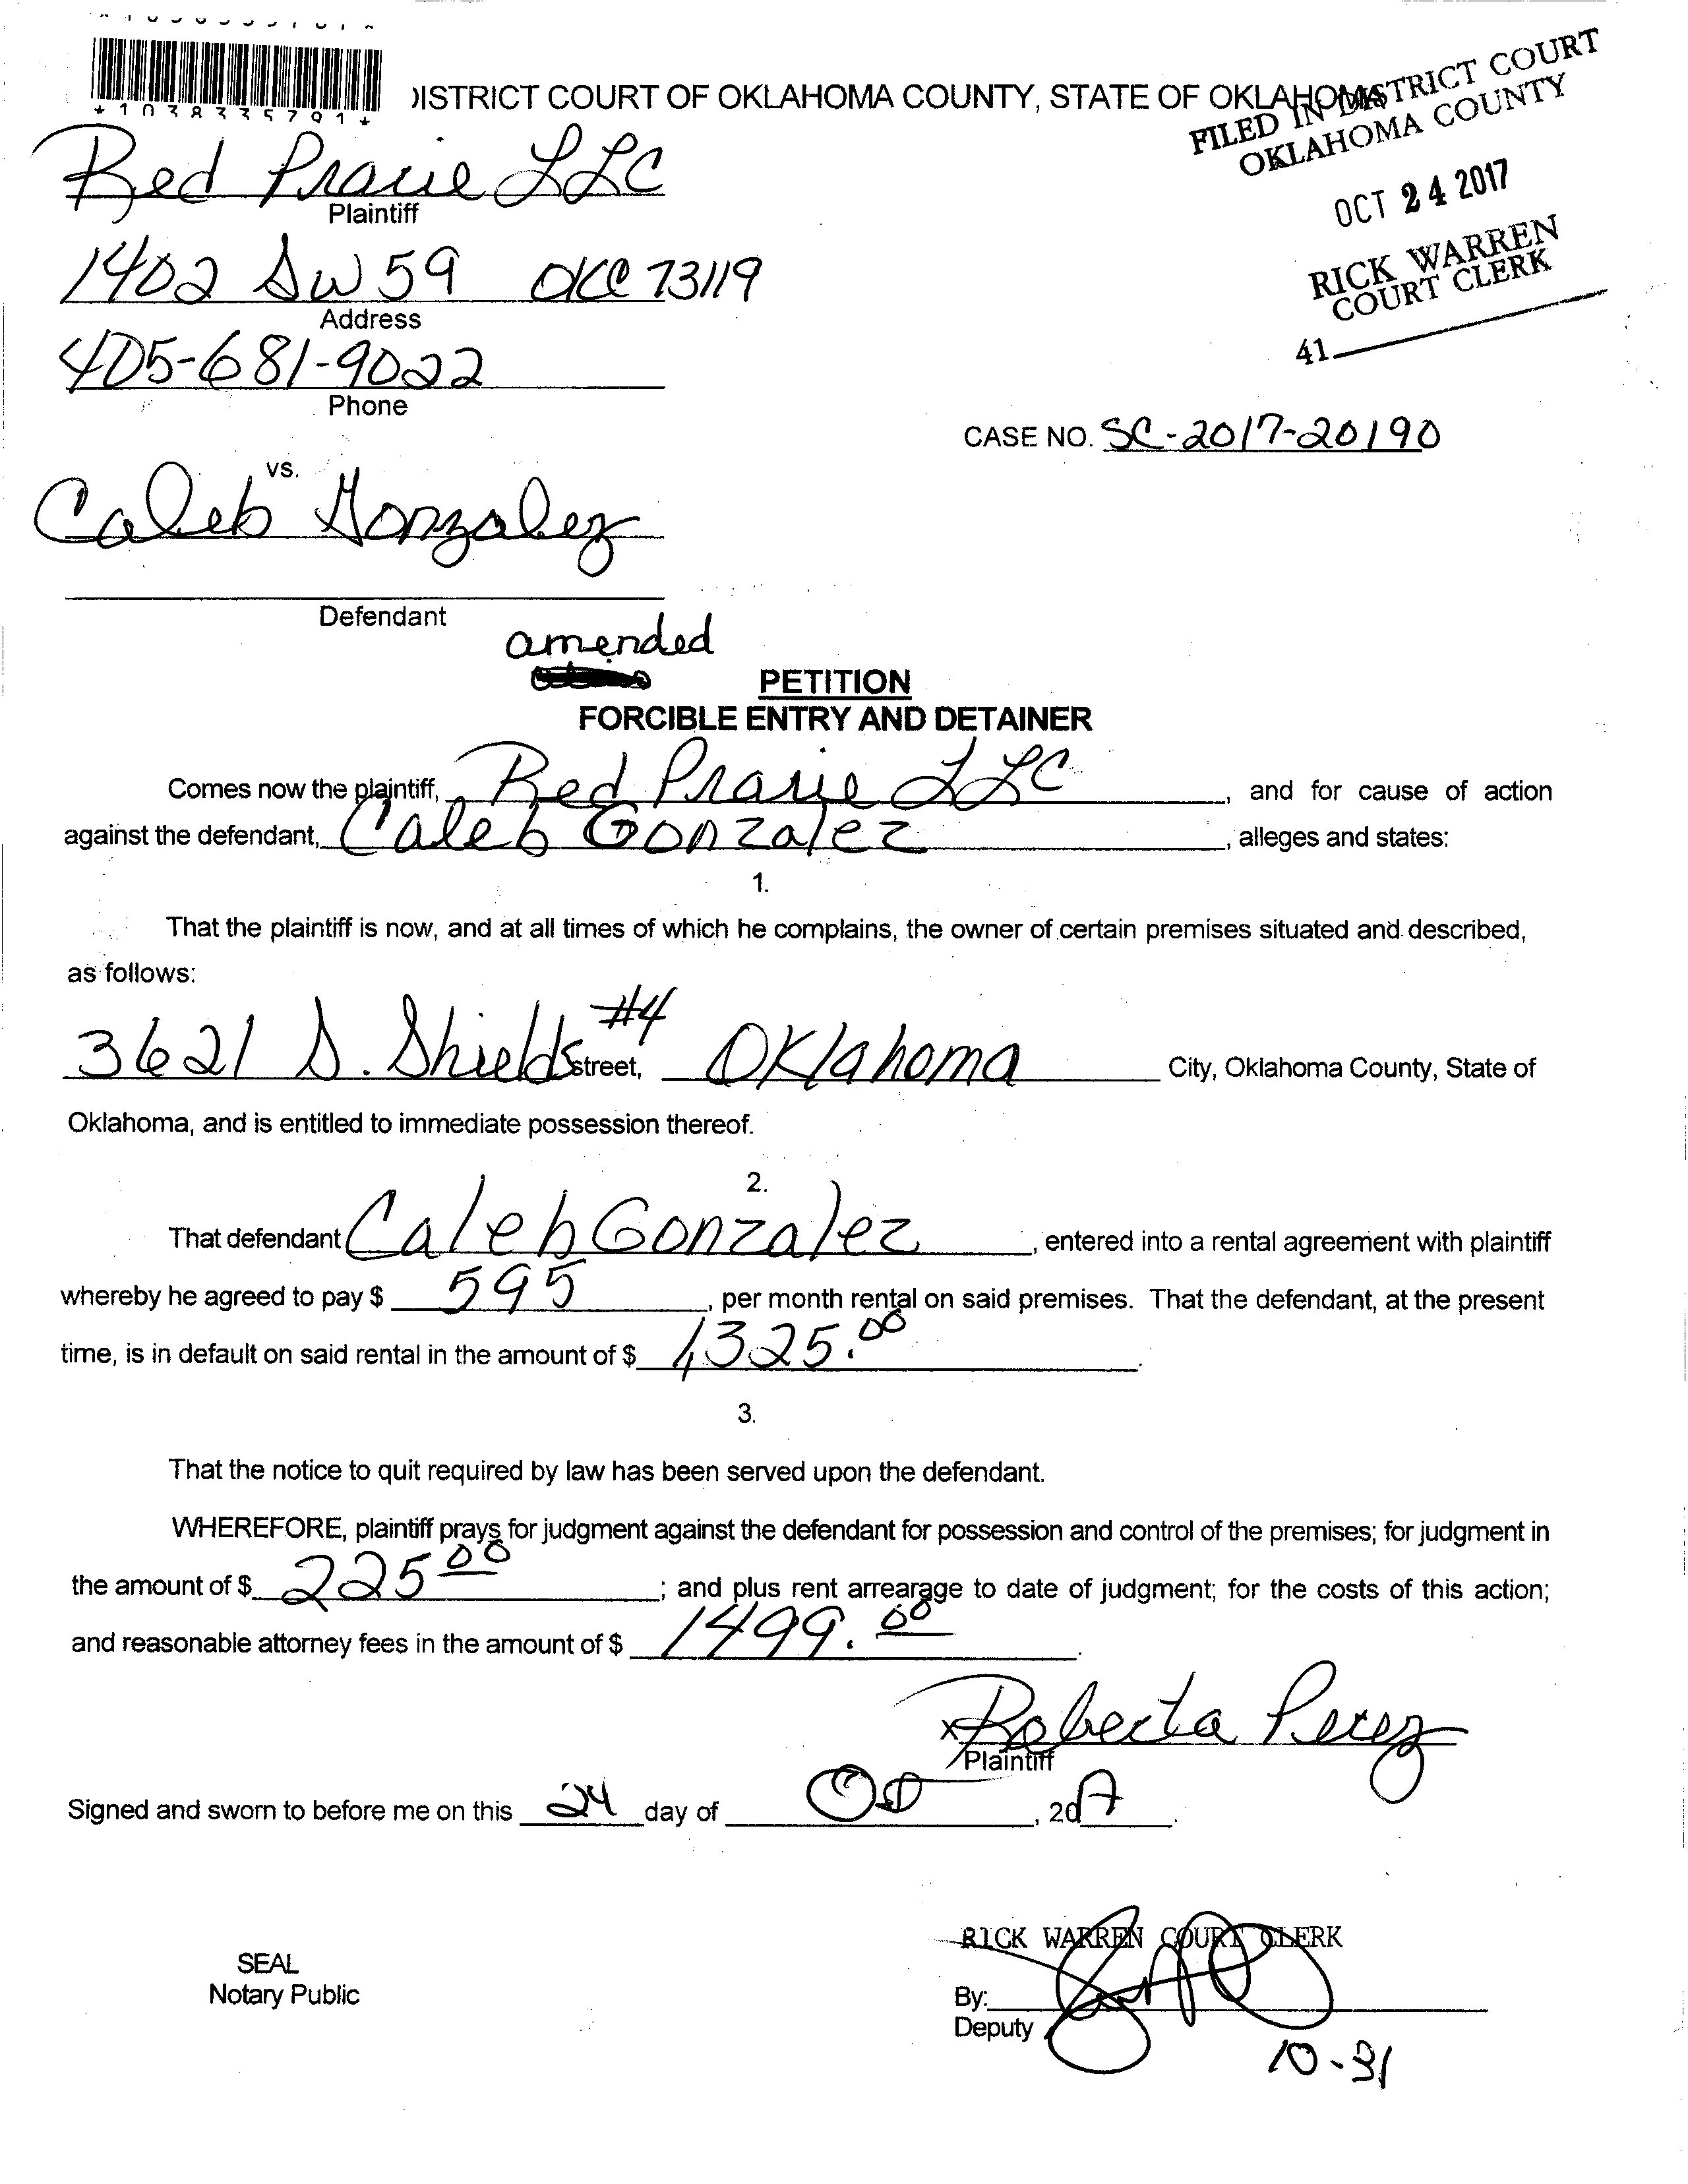 *1038335791*
DISTRICT COURT OF OKLAHOMA COUNTY, STATE OF OKLAHOMA
FILED IN DISTRICT COURT
OKLAHOMA COUNTY
OCT 24 2017
RICK WARREN
COURT CLERK
41
Red Prarie LLC
Plaintiff
1402 SW 59 OKC 73119
Address
405-681-9022
Phone
CASE NO. SC-2017-20190
vs.
Caleb Gonzalez
Defendant
amended
PETITION
FORCIBLE ENTRY AND DETAINER
Comes now the plaintiff, Red Prarie LLC, and for cause of action
against the defendant, Caleb Gonzalez, alleges and states:
1.
That the plaintiff is now, and at all times of which he complains, the owner of certain premises situated and described,
as follows:
3621 S. Shields #4 street, Oklahoma City, Oklahoma County, State of
Oklahoma, and is entitled to immediate possession thereof.
2.
That defendant Caleb Gonzalez, entered into a rental agreement with plaintiff
whereby he agreed to pay $ 595, per month rental on said premises. That the defendant, at the present
time, is in default on said rental in the amount of $ 1,325.00.
3.
That the notice to quit required by law has been served upon the defendant.
WHEREFORE, plaintiff prays for judgment against the defendant for possession and control of the premises; for judgment in
the amount of $ 225 00; and plus rent arrearage to date of judgment; for the costs of this action;
and reasonable attorney fees in the amount of $ 1499.00.
x Roberta Perez
Plaintiff
Signed and sworn to before me on this 24 day of , 2017.
RICK WARREN COURT CLERK
SEAL
Notary Public
By:
Deputy
10-31